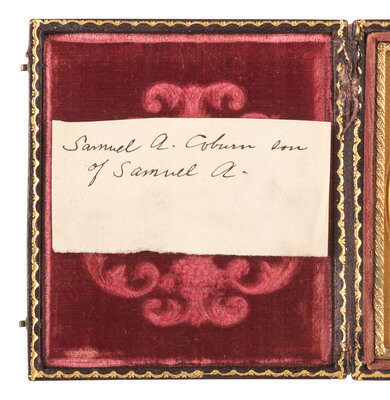 Samuel A. Coburn son
of Samuel A.